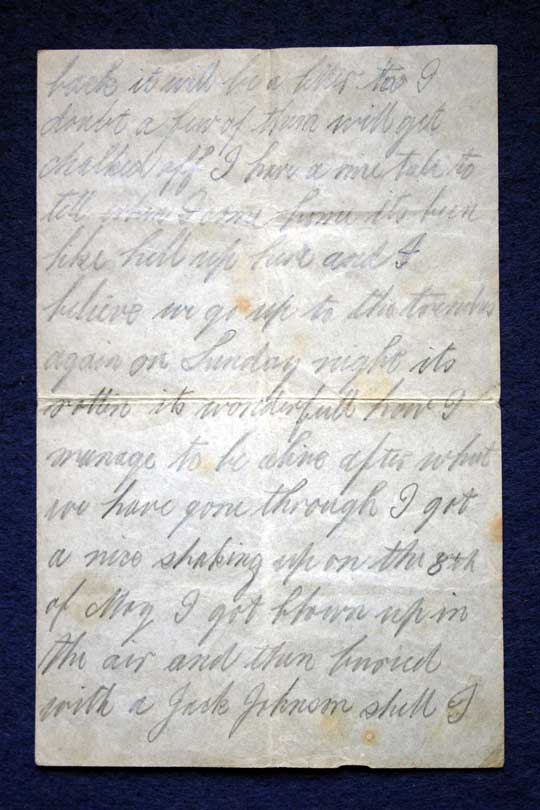 back it will be a after too I
doubt a few of them will get
chalked off I have a one tale to
tell when I come home its been
like hell up here and I
believe we go up to the trenches
again on Sunday night its
rotten its wonderfull how I
manage to be alive after what
we have gone through I got
a nice shaking up on the 8th
of May I got blown up in
the air and then buried
with a Jack Johnson shell I